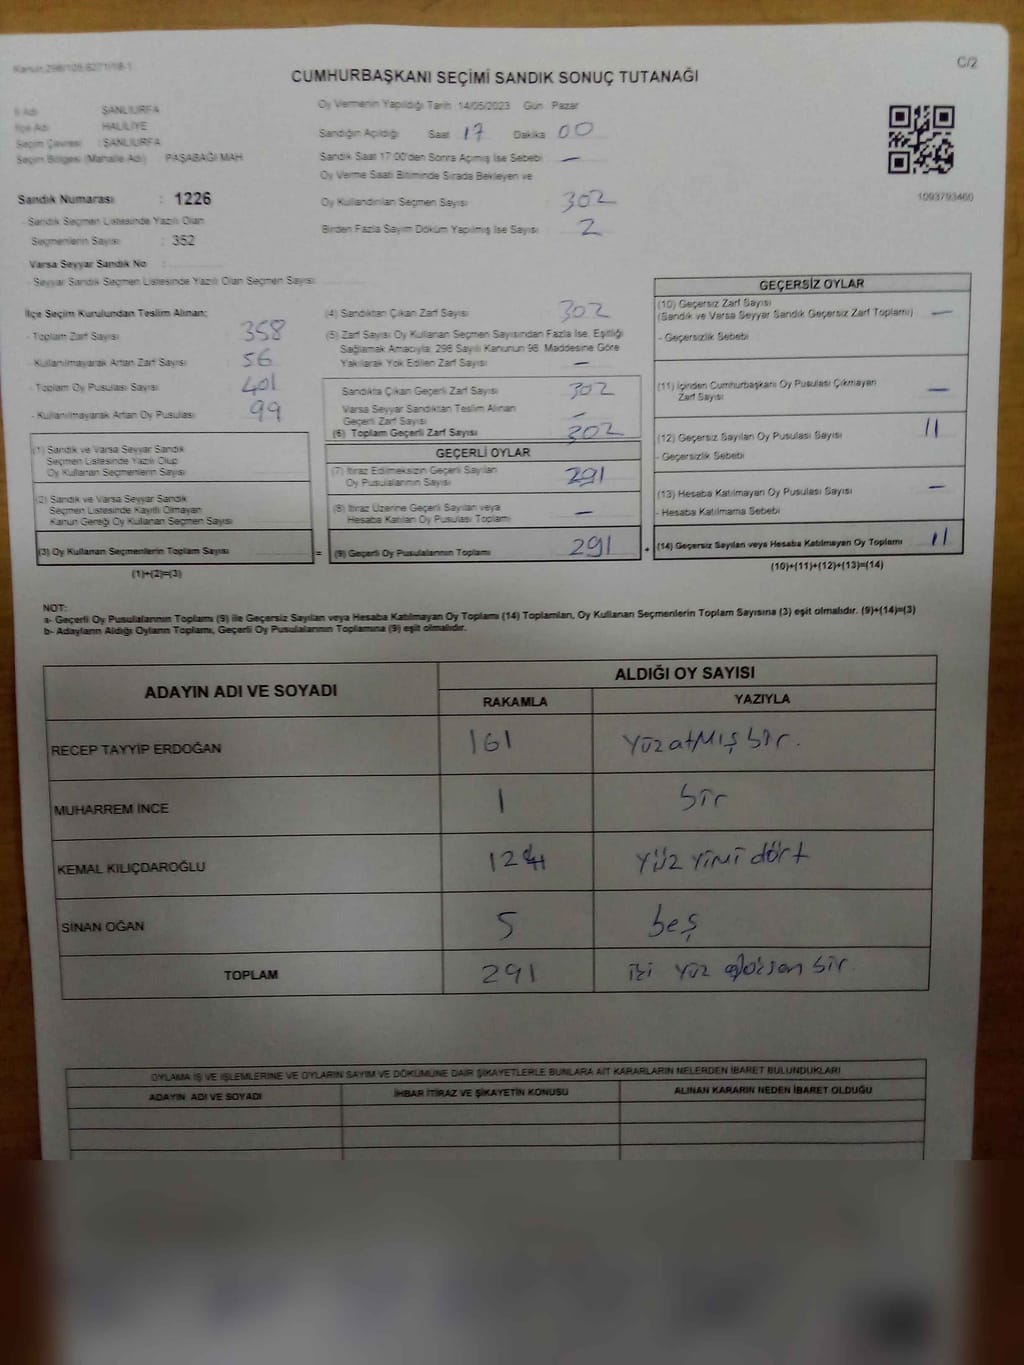 Kanun:298/105,6271/18-1
C/2
CUMHURBAŞKANI SEÇİMİ SANDIK SONUÇ TUTANAĞI
İl Adı ŞANLIURFA
İlçe Adı HALİLİYE
Seçim Çevresi : ŞANLIURFA
Seçim Bölgesi (Mahalle Adı) PAŞABAĞI MAH
Sandık Numarası : 1226
- Sandık Seçmen Listesinde Yazılı Olan
Seçmenlerin Sayısı : 352
Varsa Seyyar Sandık No :
- Seyyar Sandık Seçmen Listesinde Yazılı Olan Seçmen Sayısı:
Oy Vermenin Yapıldığı Tarih 14/05/2023 Gün Pazar
Sandığın Açıldığı Saat 17 Dakika 00
Sandık Saat 17:00'den Sonra Açımış İse Sebebi —
Oy Verme Saati Bitiminde Sırada Bekleyen ve
Oy Kullandırılan Seçmen Sayısı 302
Birden Fazla Sayım Döküm Yapılmış İse Sayısı 2
1093793460
İlçe Seçim Kurulundan Teslim Alınan;
- Toplam Zarf Sayısı 358
- Kullanılmayarak Artan Zarf Sayısı 56
- Toplam Oy Pusulası Sayısı 401
- Kullanılmayarak Artan Oy Pusulası 99
(1) Sandık ve Varsa Seyyar Sandık
Seçmen Listesinde Yazılı Olup
Oy Kullanan Seçmenlerin Sayısı
(2) Sandık ve Varsa Seyyar Sandık
Seçmen Listesinde Kayıtlı Olmayan
Kanun Gereği Oy Kullanan Seçmen Sayısı
(3) Oy Kullanan Seçmenlerin Toplam Sayısı =
(1)+(2)=(3)
(4) Sandıktan Çıkan Zarf Sayısı 302
(5) Zarf Sayısı Oy Kullanan Seçmen Sayısından Fazla İse, Eşitliği
Sağlamak Amacıyla; 298 Sayılı Kanunun 98. Maddesine Göre
Yakılarak Yok Edilen Zarf Sayısı —
Sandıkta Çıkan Geçerli Zarf Sayısı 302
Varsa Seyyar Sandıktan Teslim Alınan
Geçerli Zarf Sayısı —
(6) Toplam Geçerli Zarf Sayısı 302
GEÇERLİ OYLAR
(7) İtiraz Edilmeksizin Geçerli Sayılan
Oy Pusulalarının Sayısı 291
(8) İtiraz Üzerine Geçerli Sayılan veya
Hesaba Katılan Oy Pusulası Toplamı —
(9) Geçerli Oy Pusulalarının Toplamı 291 +
GEÇERSİZ OYLAR
(10) Geçersiz Zarf Sayısı
(Sandık ve Varsa Seyyar Sandık Geçersiz Zarf Toplamı) —
- Geçersizlik Sebebi
(11) İçinden Cumhurbaşkanı Oy Pusulası Çıkmayan
Zarf Sayısı —
(12) Geçersiz Sayılan Oy Pusulası Sayısı 11
- Geçersizlik Sebebi
(13) Hesaba Katılmayan Oy Pusulası Sayısı —
- Hesaba Katılmama Sebebi
(14) Geçersiz Sayılan veya Hesaba Katılmayan Oy Toplamı 11
(10)+(11)+(12)+(13)=(14)
NOT:
a- Geçerli Oy Pusulalarının Toplamı (9) ile Geçersiz Sayılan veya Hesaba Katılmayan Oy Toplamı (14) Toplamları, Oy Kullanan Seçmenlerin Toplam Sayısına (3) eşit olmalıdır. (9)+(14)=(3)
b- Adayların Aldığı Oyların Toplamı, Geçerli Oy Pusulalarının Toplamına (9) eşit olmalıdır.
ADAYIN ADI VE SOYADI ALDIĞI OY SAYISI
RAKAMLA YAZIYLA
RECEP TAYYİP ERDOĞAN 161 Yüzatmış bir.
MUHARREM İNCE 1 bir
KEMAL KILIÇDAROĞLU 124 Yüz yimi dört
SİNAN OĞAN 5 beş
TOPLAM 291 iki yüz doksan bir.
OYLAMA İŞ VE İŞLEMLERİNE VE OYLARIN SAYIM VE DÖKÜMÜNE DAİR ŞİKAYETLERLE BUNLARA AİT KARARLARIN NELERDEN İBARET BULUNDUKLARI
ADAYIN ADI VE SOYADI İHBAR İTİRAZ VE ŞİKAYETİN KONUSU ALINAN KARARIN NEDEN İBARET OLDUĞU